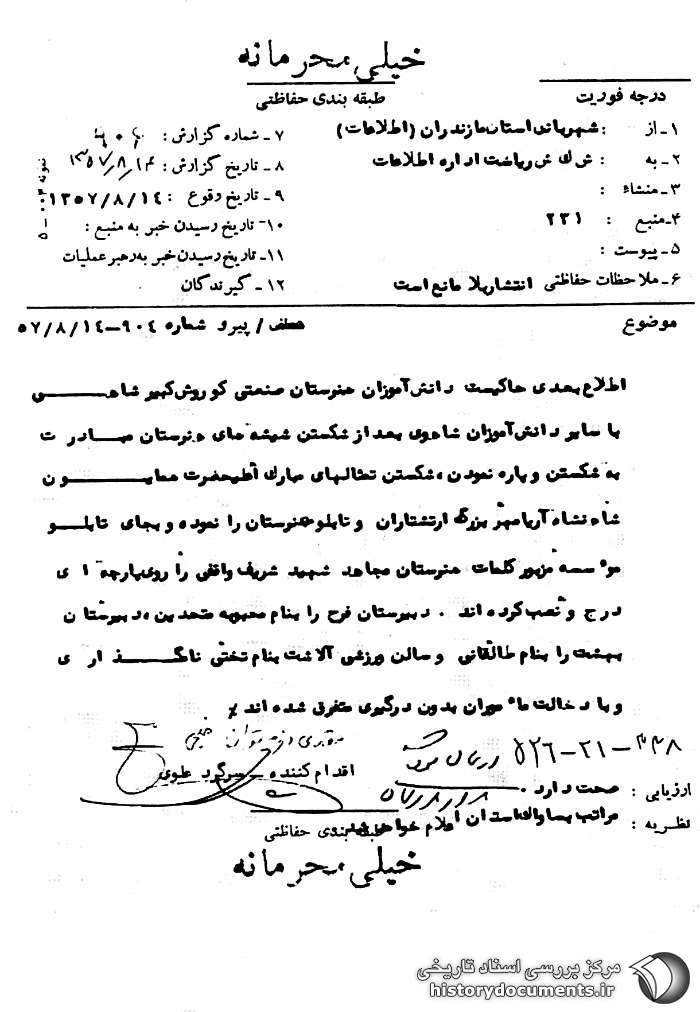 خیلی محرمانه
طبقه بندی حفاظتی
درجه فوریت
۱ـ از : شهربانی استان مازندران (اطلاعات)
۲ـ به : ش ک ش ریاست اداره اطلاعات
۳ـ منشاء :
۴ـ منبع : ۲۳۱
۵ـ پیوست :
۶ـ ملاحظات حفاظتی انتشار بلا مانع است
۷ـ شماره گزارش :
۸ـ تاریخ گزارش : ۱۳۵۷/۸/۱۴
۹ـ تاریخ وقوع : ۱۳۵۷/۸/۱۴
۱۰ـ تاریخ رسیدن خبر به منبع :
۱۱ـ تاریخ رسیدن خبر به رهبر عملیات
۱۲ـ گیرندگان
نمونه ۴۰۳ـ۵
موضوع عطف / پیرو شماره ۹۰۴ـ۵۷/۸/۱۴
اطلاع بعدی حاکیست دانش آموزان هنرستان صنعتی کوروش کبیر شاهی
با سایر دانش آموزان شاهوی بعد از شکستن شیشه های هنرستان مبادرت
به شکستن و پاره نمودن، شکستن تمثالهای مبارک اعلیحضرت همایون
شاهنشاه آریامهر بزرگ ارتشتاران و تابلو هنرستان را نموده و بجای تابلو
موسسه مزبور کلمات هنرستان مجاهد شهید شریف واقفی را روی پارچه ای
درج و نصب کرده اند . دبیرستان فرح را بنام محبوبه متحدین، دبیرستان
بهشت را بنام طالقانی و سالن ورزشی آلاشت بنام تختی نامگذاری
و با دخالت مامورین بدون درگیری متفرق شده اند ٪
۳۴۸ـ۲۱ـ۵۲۶
اقدام کننده ـ سرگرد علوی
ارزیابی : صحت دارد .
نظریه : مراتب بساواک استان اعلام خواهد شد
طبقه بندی حفاظتی
خیلی محرمانه
مرکز بررسی اسناد تاریخی
historydocuments.ir